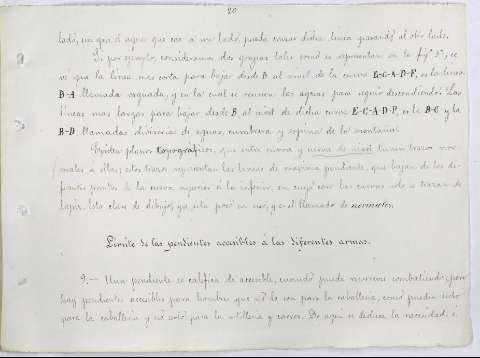 20
lado, sin que el agua que cae a un lado, pueda cruzar dicha línea pasando al otro lado.
Si por ejemplo, consideramos dos grupos tales como se representan en la figª 5ª, se
vé que la línea mas corta para bajar desde B al nivel de la curva E-C-A-D-F, es la línea
B-A llamada vaguada, y en la cual se reunen las aguas para seguir descendiendo. Las
líneas mas largas para bajar desde B al nivel de dicha curva E-C-A-D-F, es la B-C y la
B-D llamadas divisorias de aguas, cumbrera y espina de la montaña.
Existen planos topográficos, que entre curva y curva de nivel tienen trazos nor-
males a ellas; estos trazos representan las líneas de máxima pendiente, que bajan de los di-
ferentes puntos de la curva superior á la inferior, en cuyo caso las curvas solo se trazan de
lapiz. Esta clase de dibujos, ya está poco en uso, y es el llamado de normales.
Límite de las pendientes accesibles á las diferentes armas.
9.- Una pendiente se califica de accesible, cuando puede recorrerse combatiendo; pero
hay pendientes accesibles para hombres que nó lo son para la caballería, como pueden serlo
para la caballería y nó serlo para la artillería y carros. De aquí se deduce la necesidad á